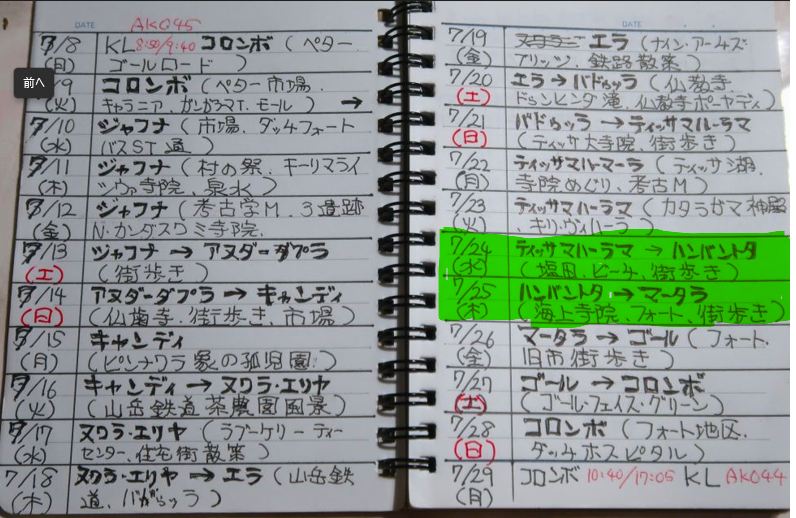 DATE
AK045
7/8
(月)
KL 8:50/9:40 コロンボ (ペター
ゴールロード)
前へ
9
(火)
コロンボ (ペター市場.
キャラニア、ガンガラマT、モール) →
7/10
(水)
ジャフナ (市場、ダッチフォート
バスST通)
7/11
(木)
ジャフナ (村の祭、キーリマライ
寺院、泉水)
7/12
(金)
ジャフナ (考古学M、3遺跡
N.カンダスワミ寺院.
7/13
(土)
ジャフナ → アヌダーダプラ
(街歩き)
7/14
(日)
アヌダーダプラ → キャンディ
(仏歯寺.街歩き.市場)
7/15
(月)
キャンディ
(ピンナワラ象の孤児園)
7/16
(火)
キャンディ → ヌワラ・エリヤ
(山岳鉄道茶農園風景)
7/17
(水)
ヌワラ・エリヤ (ラブーケリーティー
センター、住宅街散策)
7/18
(木)
ヌワラ・エリヤ → エラ (山岳鉄
道、)
DATE
7/19
(金)
エラ (ナイン・アームズ
ブリッジ、鉄路散策)
7/20
(土)
エラ → バドゥッラ (仏教寺.
ドゥンヒンダ滝、仏教寺ボーヤディ)
7/21
(日)
バドゥッラ → ティッサマハーラマ
(ティッサ大寺院、街歩き)
7/22
(月)
ティッサマハーマーラ (ティッサ湖.
寺院めぐり、考古M)
7/23
(火)
ティッサマハーラマ (カタラガマ神殿
、キリ・ヴィハーラ)
7/24
(水)
ティッサマハーラマ → ハンバントタ
(塩田、ビーチ、街歩き)
7/25
(木)
ハンバントタ → マータラ
(海上寺院、フォート、街歩き)
7/26
(金)
マータラ → ゴール (フォート.
旧市街歩き)
7/27
(土)
ゴール → コロンボ
(ゴール・フェイス・グリーン)
7/28
(日)
コロンボ (フォート地区.
ダッチホスピタル)
7/29
(月)
コロンボ 10:40/17:05 KL AK044